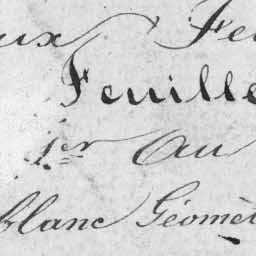 aux Fe
Feuille
1er Au
Blanc Géomèt